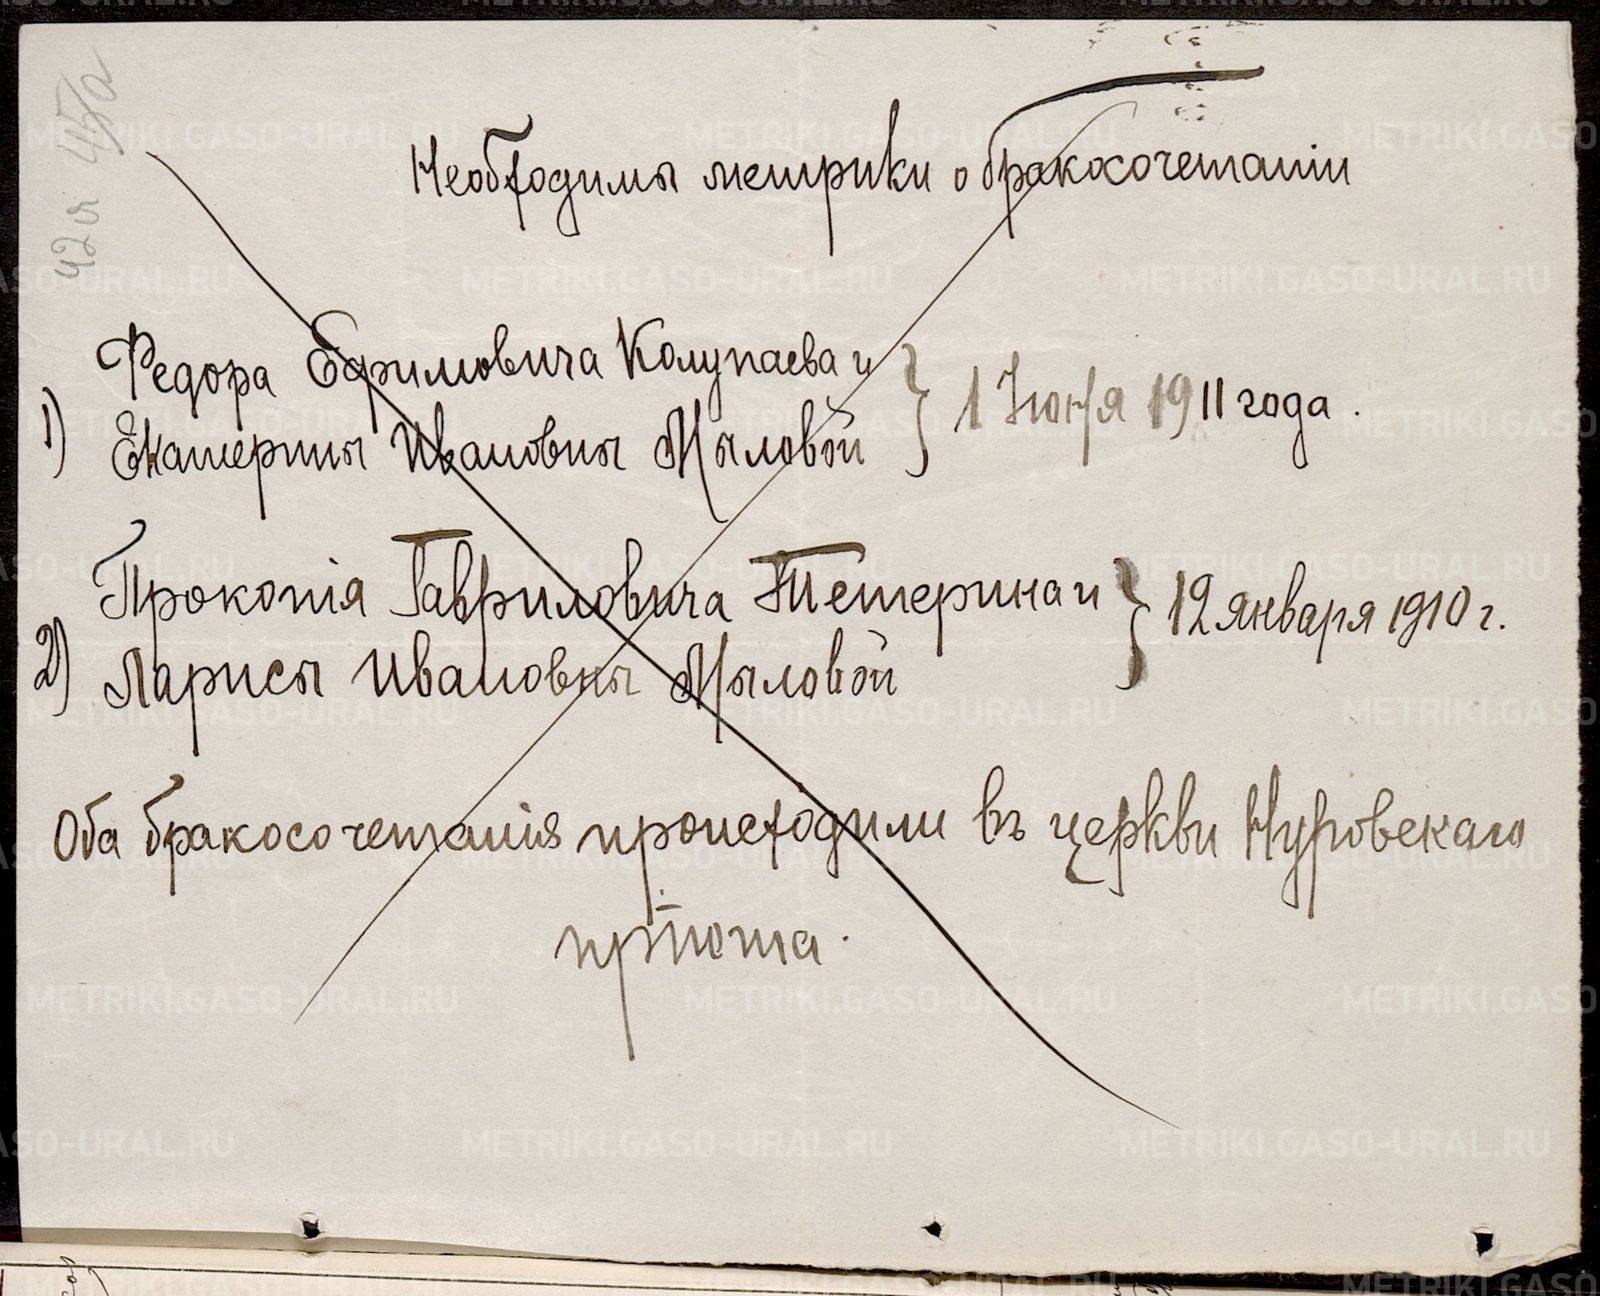 42я 45а
Необходимы метрики о бракосочетаніи
1) Федора Ефимовича Колупаева и
Екатерины Ивановны Мыловой } 1 Іюня 1911 года.
2) Прокопія Гавриловича Тетерина и
Ларисы Ивановны Мыловой } 12 января 1910 г.
Оба бракосочетанія происходили въ церкви Нуровскаго
пріюта.
METRIKI.GASO-URAL.RU